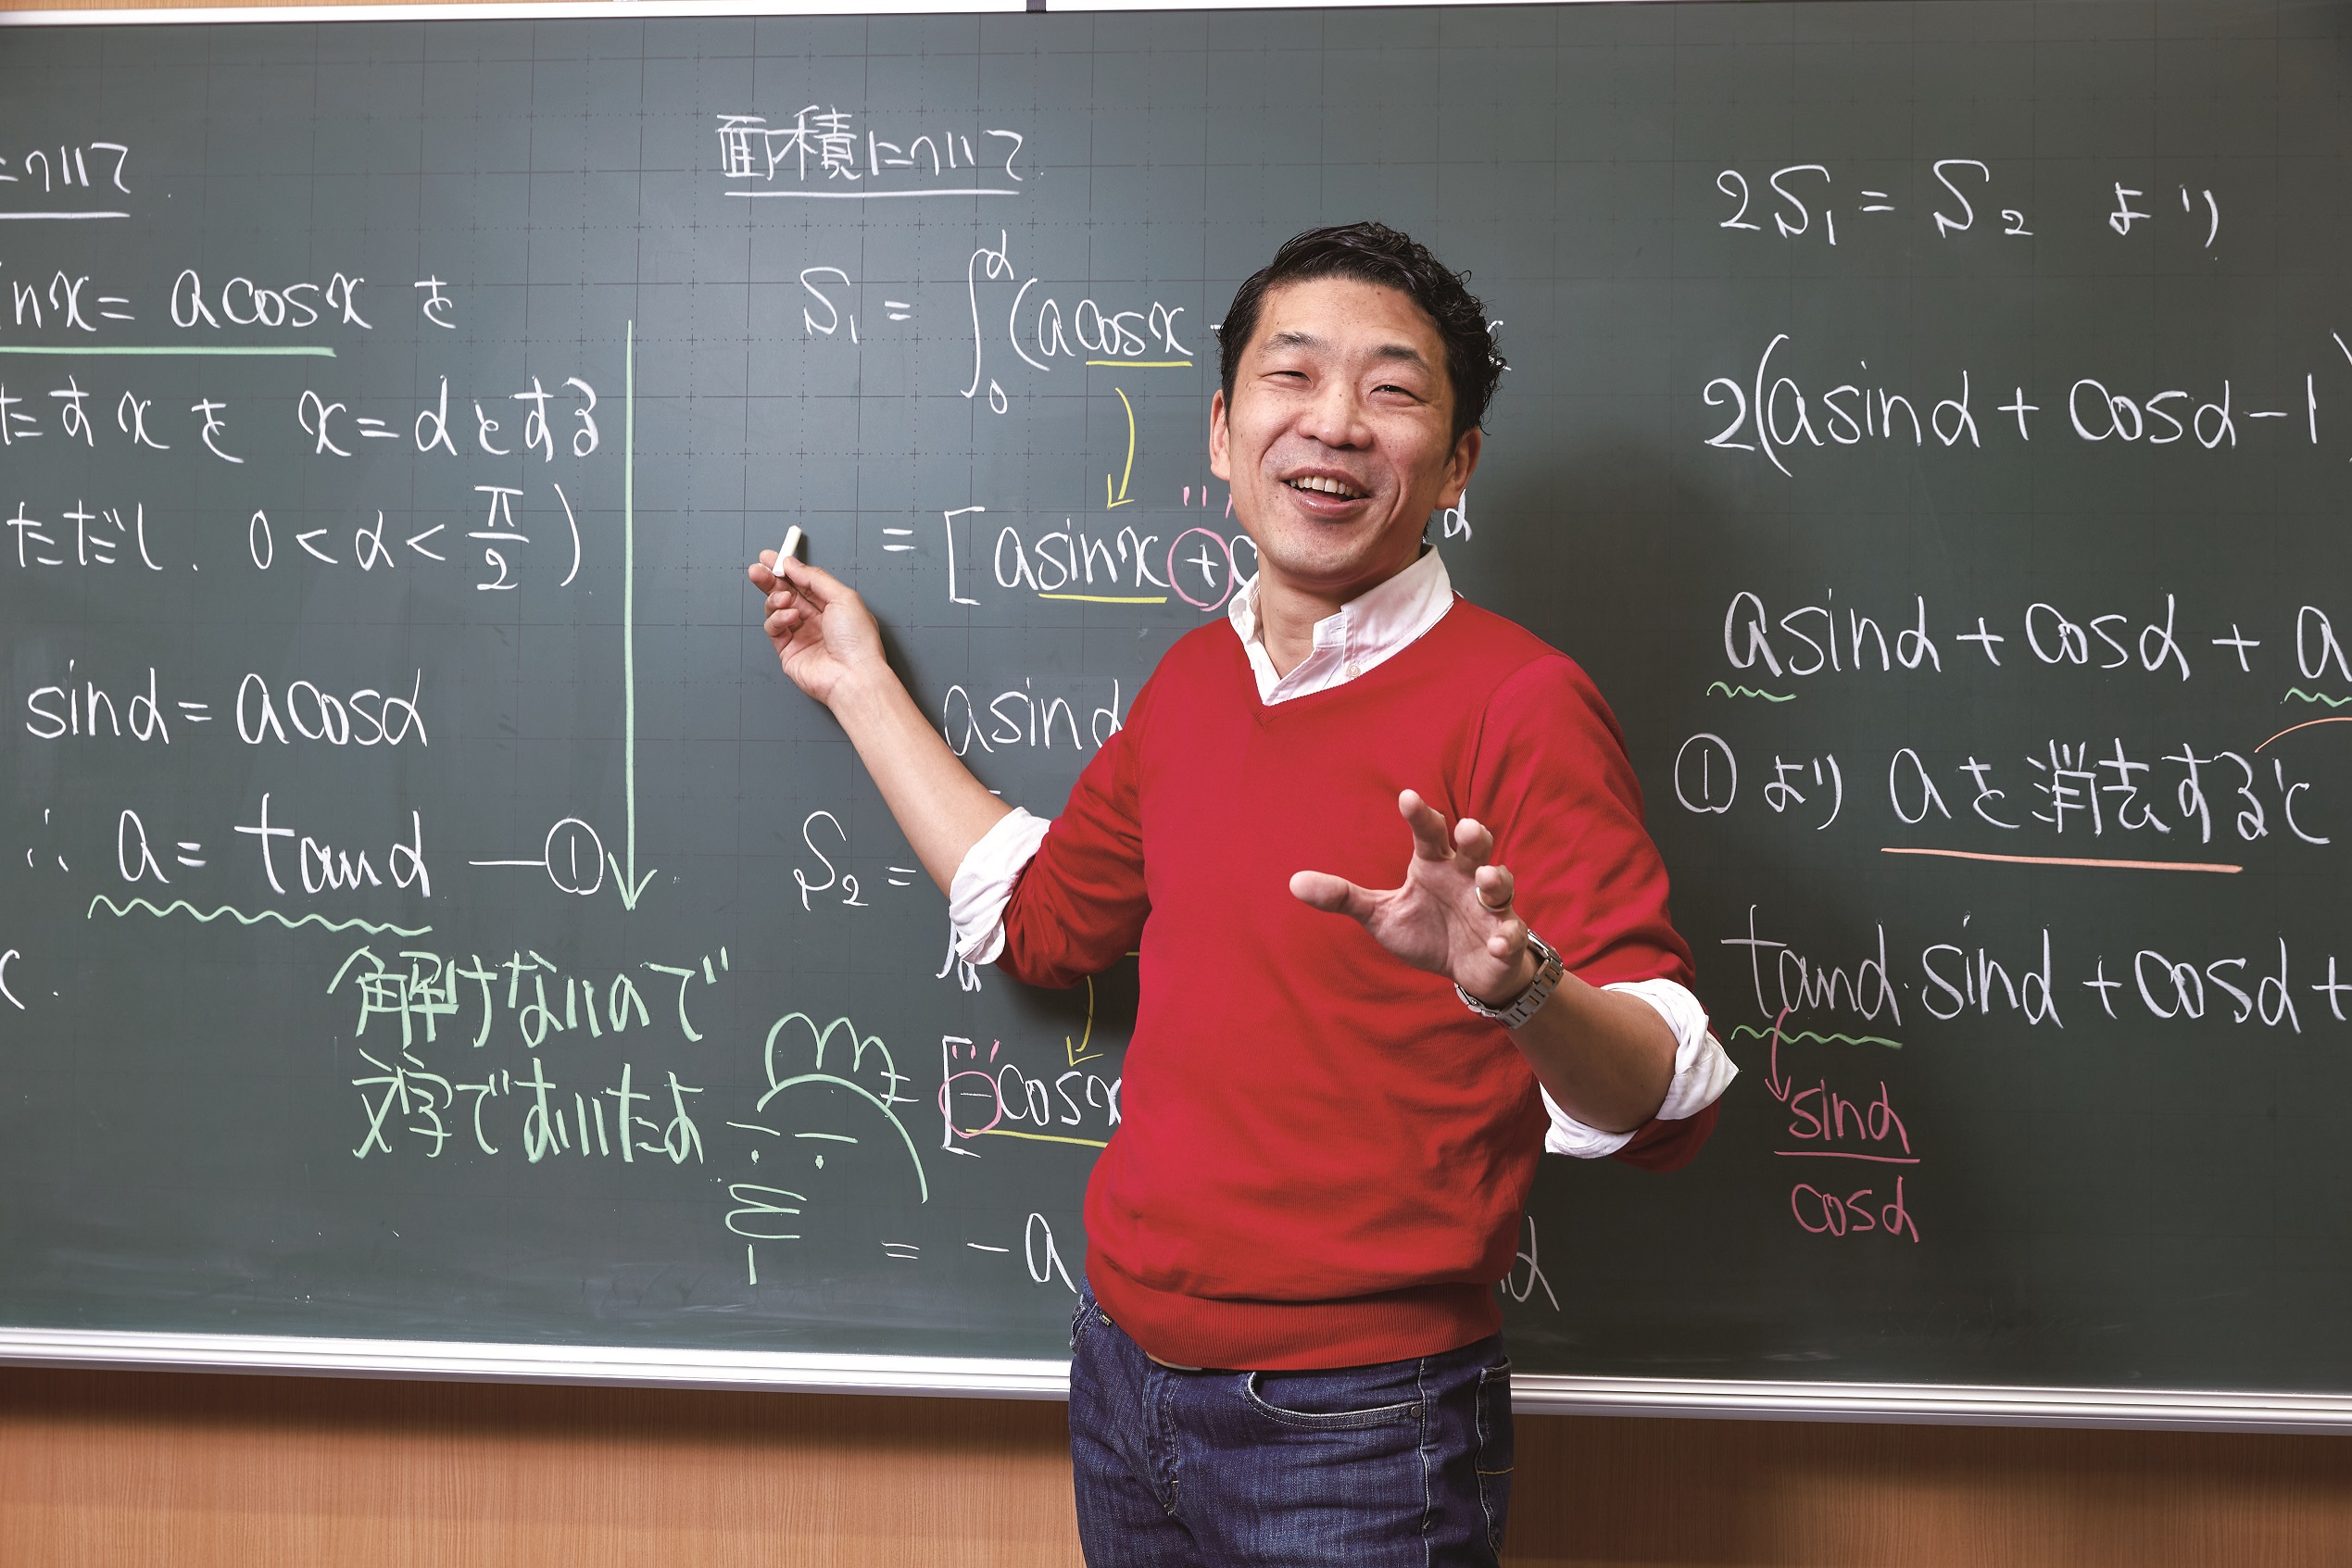 について
nx = a cosx を
たすxを x=αとする
ただし、0 < α < π/2 )
sinα = a cosα
∴ a = tanα ―①
解けないので
文字でおいたよ
面積について
S₁ = ∫₀^α (a cosx
= [a sinx +
α
a sinα
S₂ =
= [-cosx
= -a
2S₁ = S₂ より
2(a sinα + cosα - 1)
a sinα + cosα + a
①より aを消去すると
tanα・sinα + cosα +
sinα
cosα